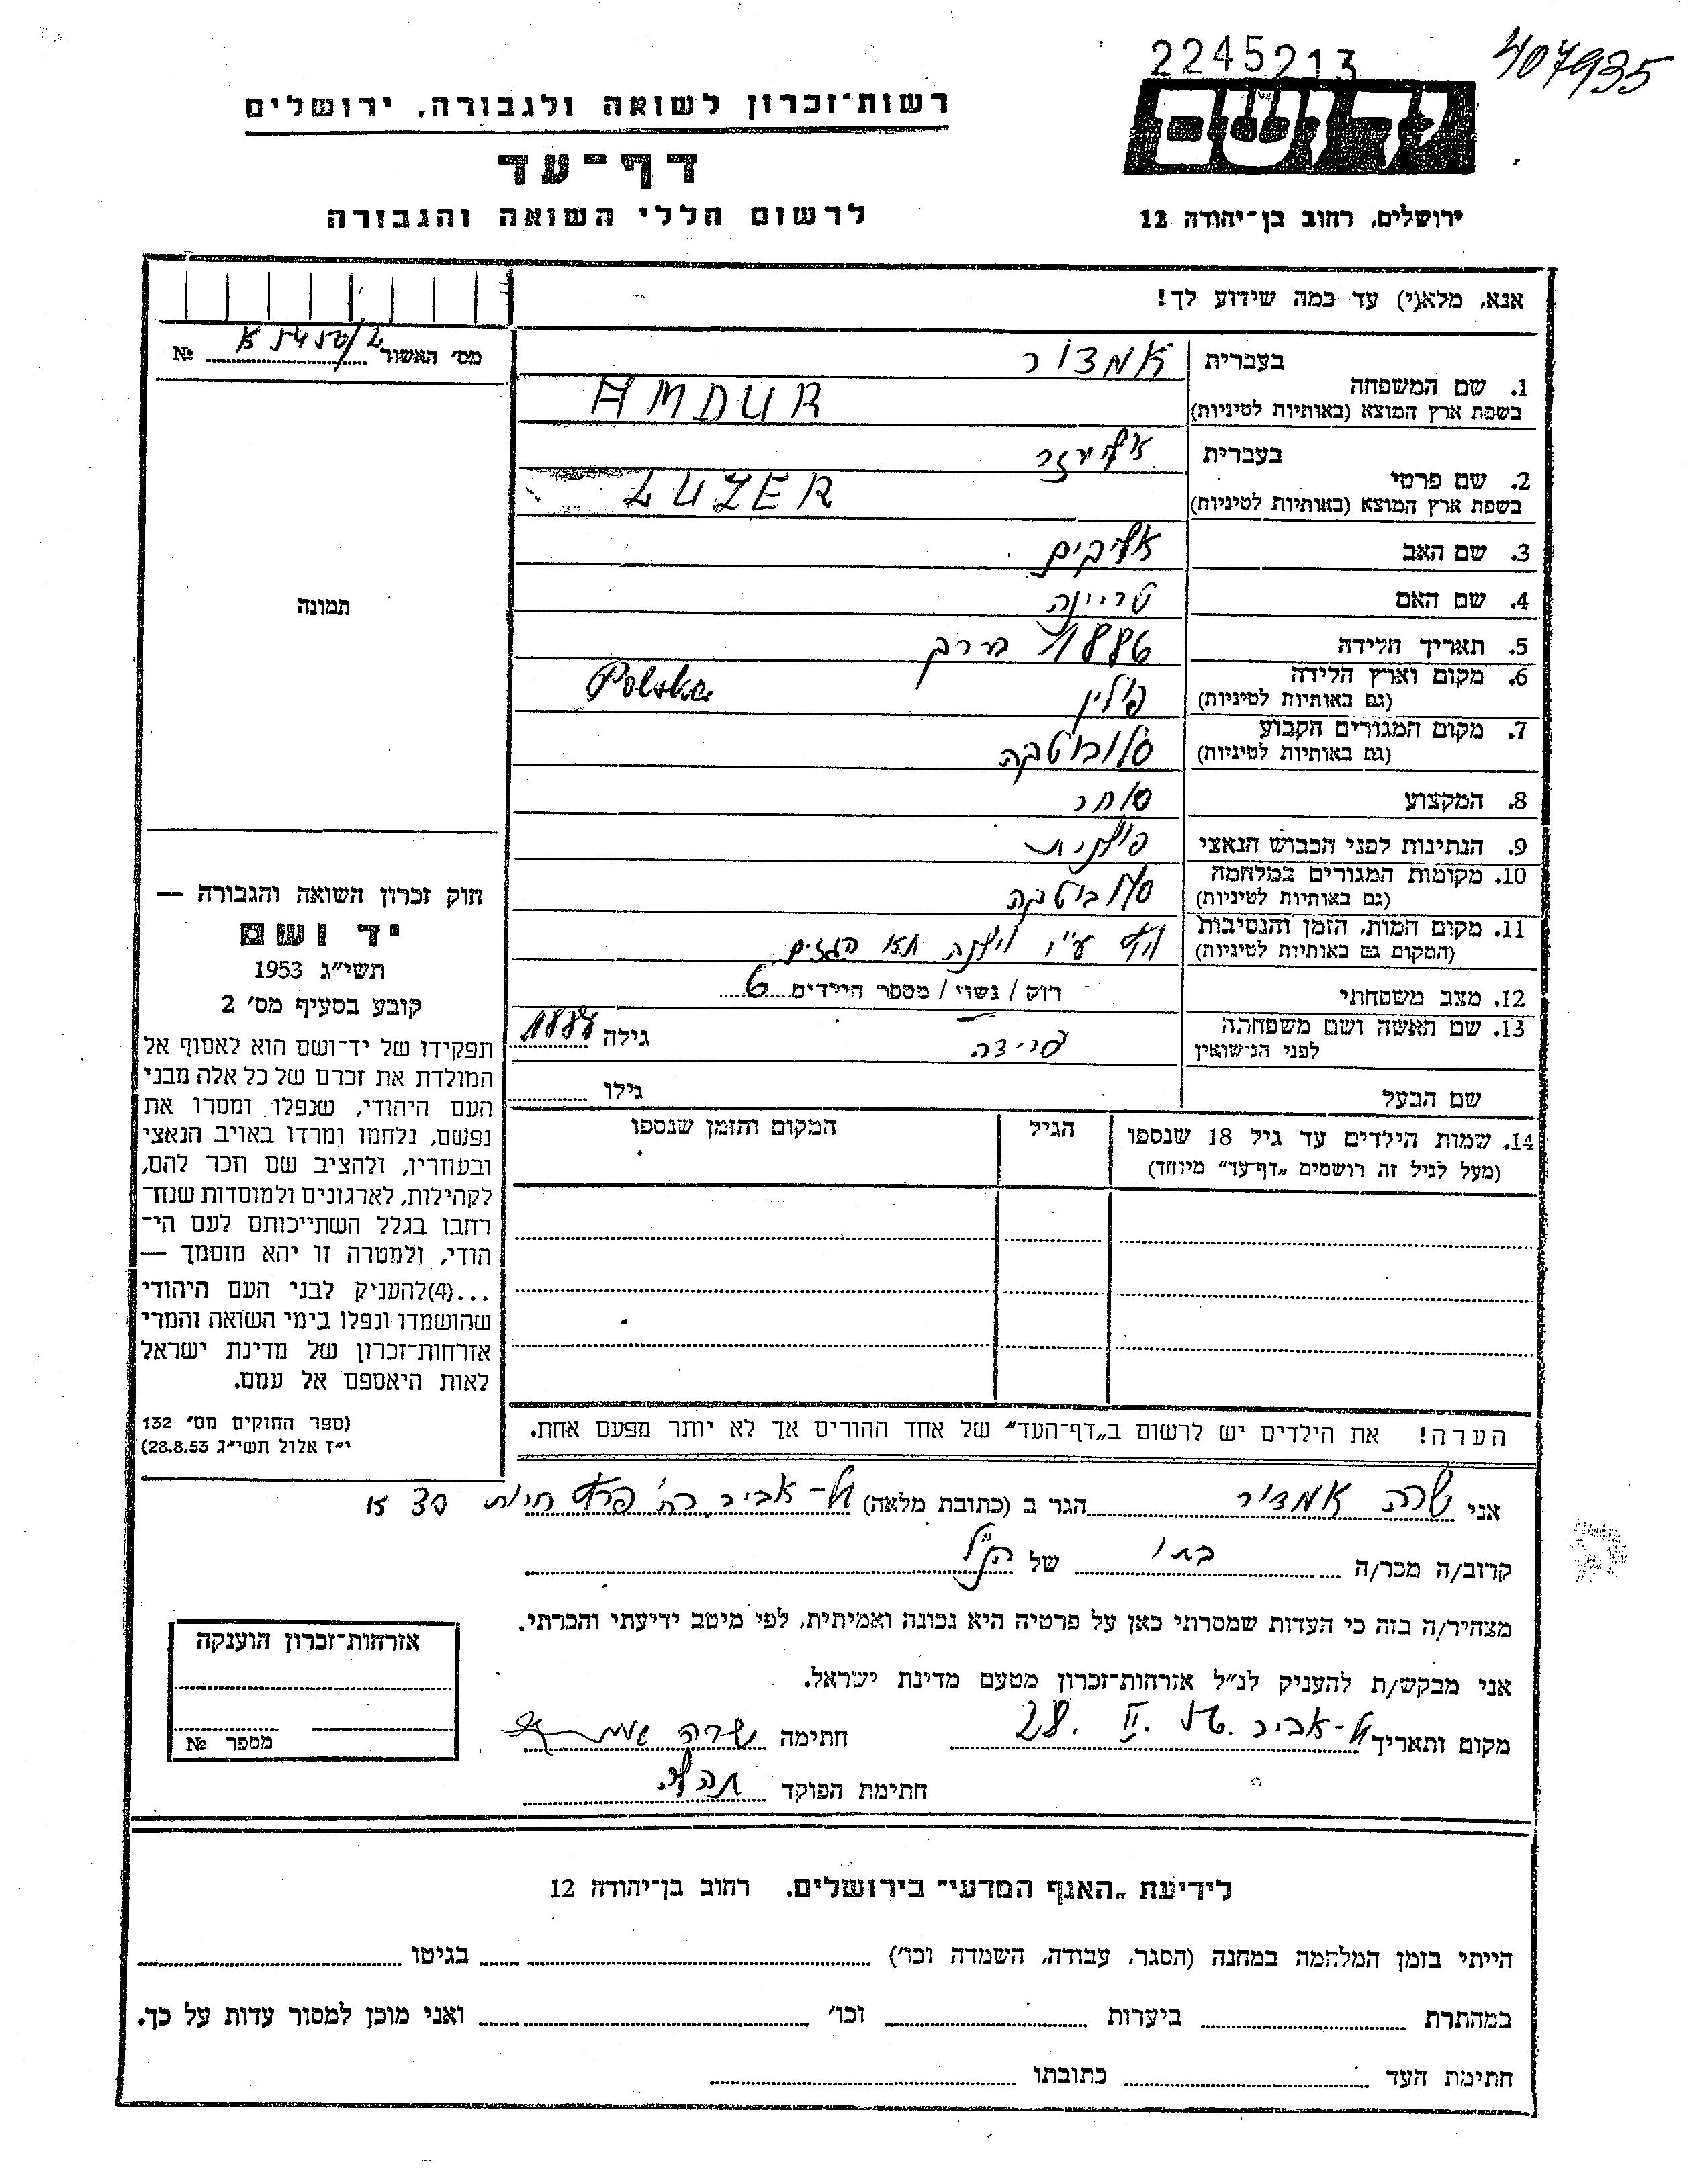 2245213
407935
יד ושם
רשות־זכרון לשואה ולגבורה, ירושלים
דף־עד
לרשום חללי השואה והגבורה
ירושלים, רחוב בן־יהודה 12
אנא, מלא(י) עד כמה שידוע לך!
מס' האשור № 
בעברית אמדור
1. שם המשפחה
בשפת ארץ המוצא (באותיות לטיניות) AMDUR
בעברית אליעזר
2. שם פרטי
בשפת ארץ המוצא (באותיות לטיניות) LUZER
3. שם האב
4. שם האם טריינה
5. תאריך הלידה 1886
6. מקום וארץ הלידה
(גם באותיות לטיניות) פולין Polska
7. מקום המגורים הקבוע
(גם באותיות לטיניות) סלובוטקה
8. המקצוע סוחר
9. הנתינות לפני הכבוש הנאצי פולנית
10. מקומות המגורים במלחמה
(גם באותיות לטיניות) סלובוטקה
11. מקום המות, הזמן והנסיבות
(המקום גם באותיות לטיניות) ע"י וילנה תא הגזים
12. מצב משפחתי רוק / נשוי / מספר הילדים 6
13. שם האשה ושם משפחתה
לפני הנישואין פרידה גילה
שם הבעל גילו
14. שמות הילדים עד גיל 18 שנספו
(מעל לגיל זה רושמים „דף־עד" מיוחד)
הגיל
המקום והזמן שנספו
הערה! את הילדים יש לרשום ב„דף־העד" של אחד ההורים אך לא יותר מפעם אחת.
תמונה
חוק זכרון השואה והגבורה —
יד ושם
תשי"ג 1953
קובע בסעיף מס' 2
תפקידו של יד־ושם הוא לאסוף אל
המולדת את זכרם של כל אלה מבני
העם היהודי, שנפלו ומסרו את
נפשם, נלחמו ומרדו באויב הנאצי
ובעוזריו, ולהציב שם וזכר להם,
לקהילות, לארגונים ולמוסדות שנח־
רחבו בגלל השתייכותם לעם הי־
הודי, ולמטרה זו יהא מוסמך —
...(4)להעניק לבני העם היהודי
שהושמדו ונפלו בימי השואה והמרי
אזרחות־זכרון של מדינת ישראל
לאות היאספם אל עמם.
(ספר החוקים מס' 132
י"ז אלול תשי"ג 28.8.53)
אני שרה אמדור הגר ב (כתובת מלאה) תל־אביב רח' פרופ' חיות 30
קרוב/ה מכר/ה בתו של הנ"ל
מצהיר/ה בזה כי העדות שמסרתי כאן על פרטיה היא נכונה ואמיתית, לפי מיטב ידיעתי והכרתי.
אני מבקש/ת להעניק לנ"ל אזרחות־זכרון מטעם מדינת ישראל.
מקום ותאריך תל־אביב 28. חתימה שרה
חתימת הפוקד
אזרחות־זכרון הוענקה
מספר №
לידיעת „האגף המדעי" בירושלים. רחוב בן־יהודה 12
הייתי בזמן המלחמה במחנה (הסגר, עבודה, השמדה וכו') בגיטו
במחתרת ביערות וכו' ואני מוכן למסור עדות על כך.
חתימת העד כתובתו